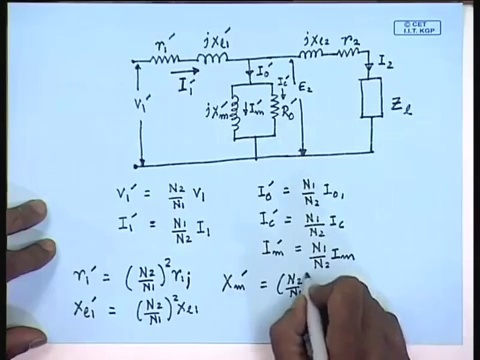 © CET
I.I.T. KGP
r₁′ jxℓ₁′ jxℓ₂ r₂
I₁′ I₀′ I₂
Ic′ E₂
V₁′ jXm′ Im′ R₀′ Zℓ
V₁′ = N₂/N₁ V₁ I₀′ = N₁/N₂ I₀₁
I₁′ = N₁/N₂ I₁ Ic′ = N₁/N₂ Ic
Im′ = N₁/N₂ Im
r₁′ = (N₂/N₁)² r₁ j Xm′ = (N₂/N₁
Xℓ₁′ = (N₂/N₁)² Xℓ₁